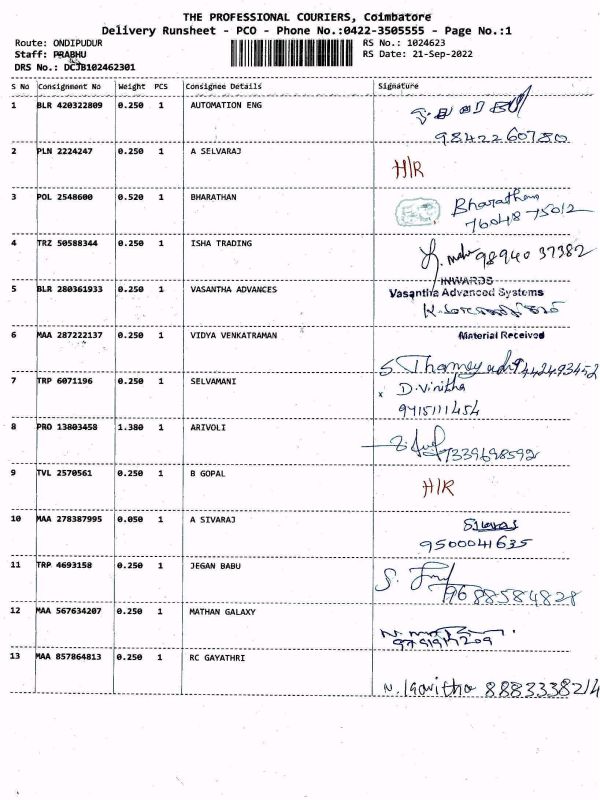 THE PROFESSIONAL COURIERS, Coimbatore
Delivery Runsheet - PCO - Phone No.:0422-3505555 - Page No.:1
Route: ONDIPUDUR RS No.: 1024623
Staff: PRABHU RS Date: 21-Sep-2022
DRS No.: DCJB102462301
S No Consignment No Weight PCS Consignee Details Signature
1 BLR 420322809 0.250 1 AUTOMATION ENG
9842260780
2 PLN 2224247 0.250 1 A SELVARAJ H/R
3 POL 2548600 0.520 1 BHARATHAN Bharathan
76048 75012
4 TRZ 50588344 0.250 1 ISHA TRADING
98940 37382
INWARDS
5 BLR 280361933 0.250 1 VASANTHA ADVANCES Vasantha Advanced Systems
6 MAA 287222137 0.250 1 VIDYA VENKATRAMAN Material Received
7 TRP 6071196 0.250 1 SELVAMANI D. Vinitha
9415111454
8 PRO 13803458 1.380 1 ARIVOLI
7339698592
9 TVL 2570561 0.250 1 B GOPAL H/R
10 MAA 278387995 0.050 1 A SIVARAJ
9500041635
11 TRP 4693158 0.250 1 JEGAN BABU
9688584828
12 MAA 567634207 0.250 1 MATHAN GALAXY
13 MAA 857864813 0.250 1 RC GAYATHRI
8883338214